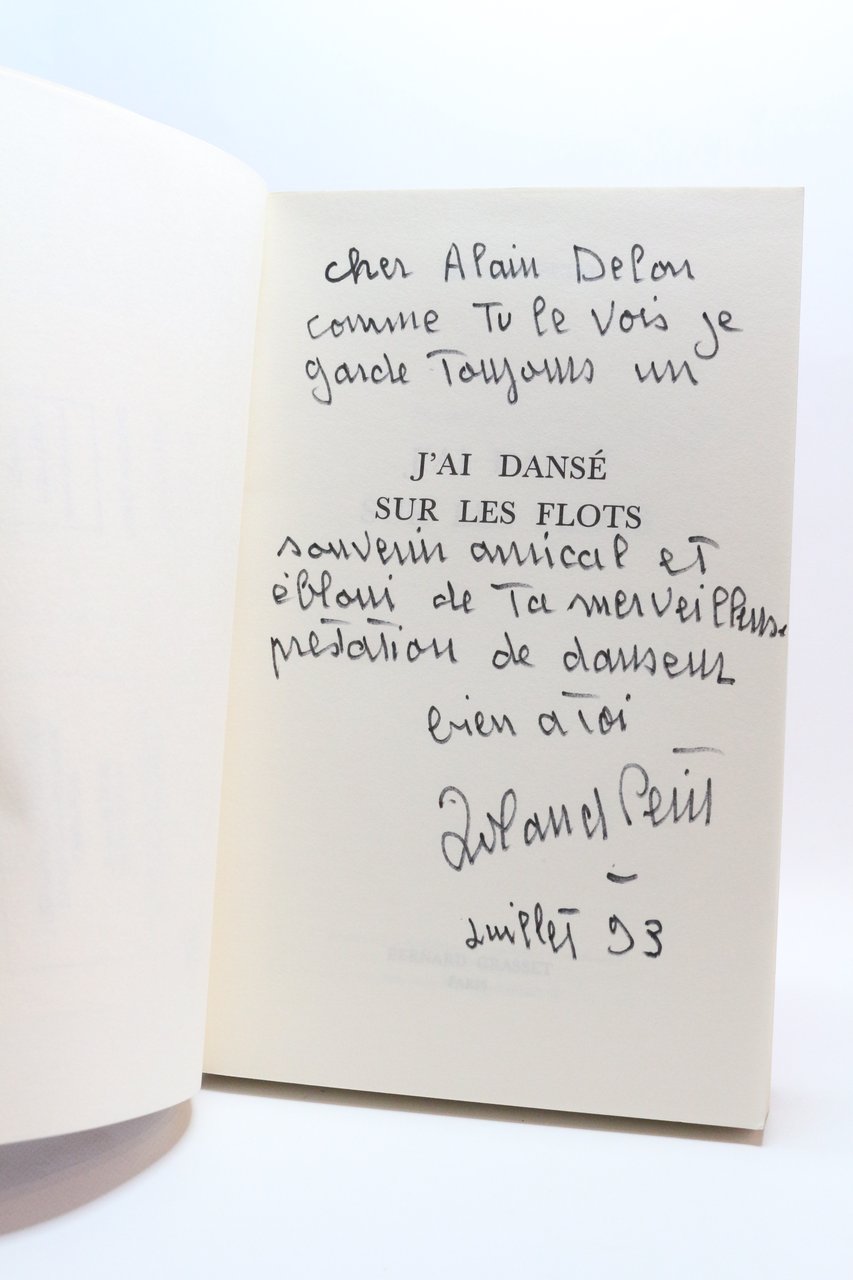 cher Alain Delon
comme Tu le Vois je
garde Toujours un
J'AI DANSÉ
SUR LES FLOTS
souvenir amical et
ébloui de Ta merveilleuse
prestation de danseur
bien a Toi
Roland Petit
Juillet 93
BERNARD GRASSET
PARIS